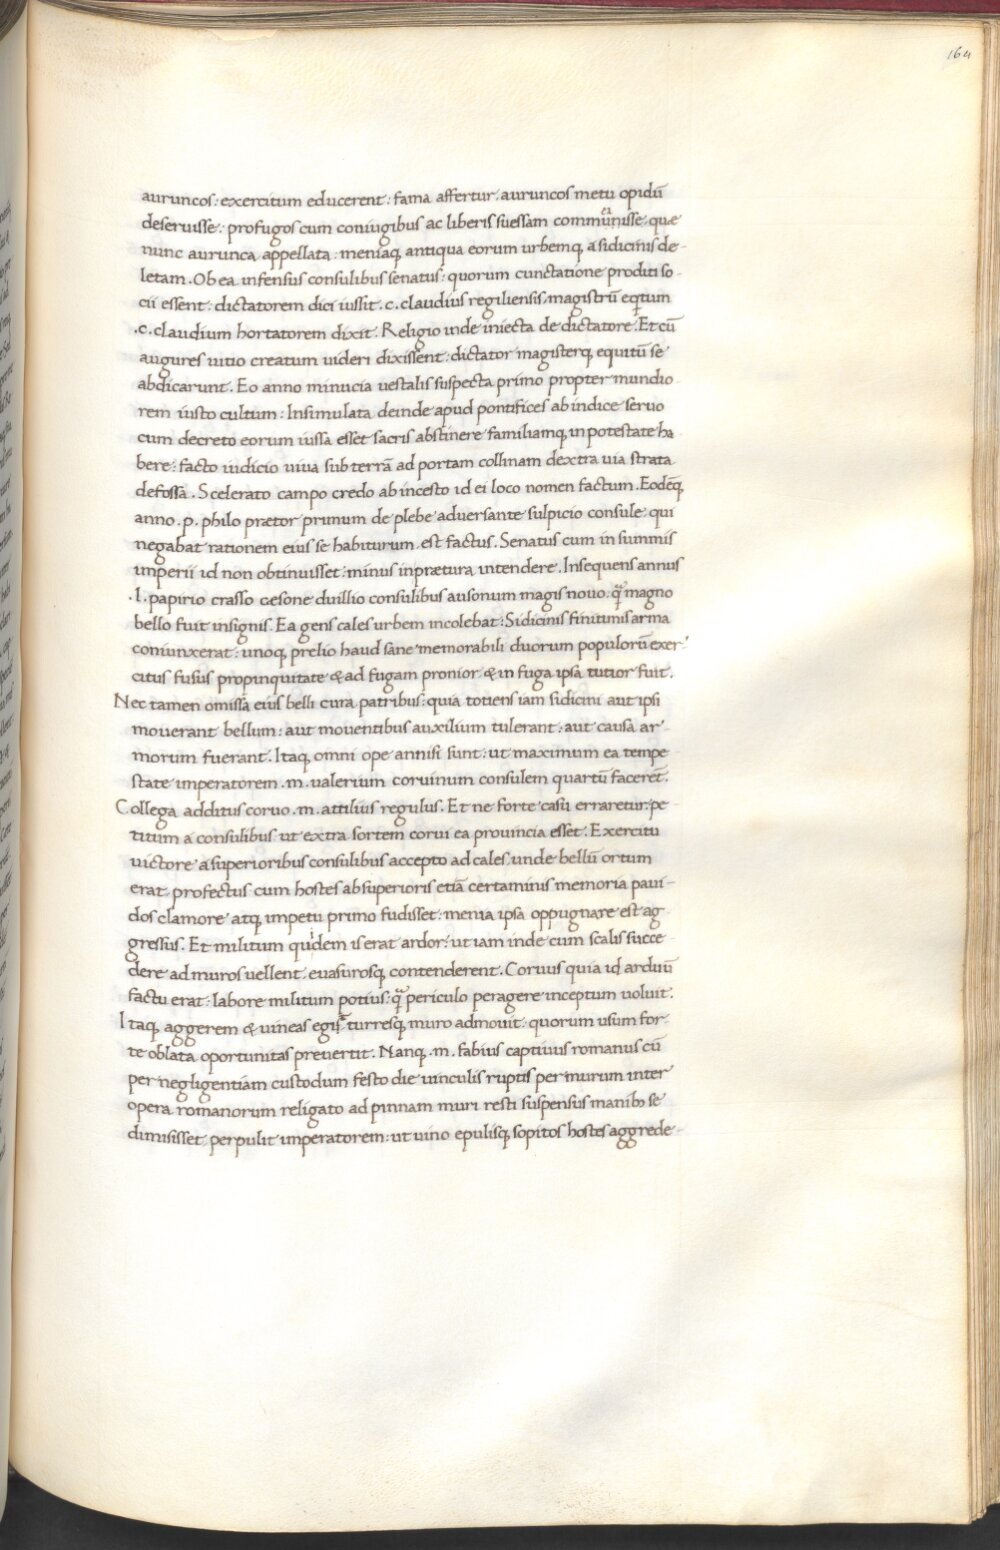 164
auruncos: exercitum educerent: fama affertur. auruncos metu opidū
deseruisse: profugos cum coniugibus ac liberis suessam commūnisse quæ
nunc aurunca appellata: meniaq; antiqua eorum urbemq; a sidicinis de-
letam. Ob ea infensus consulibus senatus: quorum cunctatione proditi so-
cii essent: dictatorem dici iussit. c. claudius regiliensis magistrū eqtum
.c. claudium hortatorem dixit. Religio inde iniecta de dictatore. Et cū
augures uitio creatum uideri dixissent: dictator magisterq; equitū se
abdicarunt. Eo anno minucia uestalis suspecta primo propter mundio
rem iusto cultum: Insimulata deinde apud pontifices ab indice seruo
cum decreto eorum iussa esset sacris abstinere familiamq; in potestate ha
bere: facto iudicio uiua sub terrā ad portam collinam dextra uia strata
defossa. Scelerato campo credo ab incesto id ei loco nomen factum. Eodēq;
anno .p. philo prætor primum de plebe aduersante sulpicio consule: qui
negabat rationem eius se habiturum est factus. Senatus cum in summis
imperii id non obtinuisset: minus in prætura intendere. Insequens annus
.l. papirio crasso cesone duillio consulibus ausonum magis nouo: q̄ magno
bello fuit insignis. Ea gens cales urbem incolebat: Sidicinis finitimis arma
coniunxerat: unoq; prelio haud sane memorabili duorum populorū exer
citus fusus propinquitate & ad fugam pronior & in fuga ipsa tutior fuit.
Nec tamen omissa eius belli cura patribus: quia totiens iam sidicini aut ipsi
mouerant bellum: aut mouentibus auxilium tulerant: aut causa ar
morum fuerant. Itaq; omni ope annisi sunt: ut maximum ea tempe
state imperatorem .m. ualerium coruinum consulem quartū facerēt.
Collega additus coruo .m. attilius regulus. Et ne forte casu erraretur: pe
titum a consulibus ut extra sortem corui ea prouincia esset. Exercitu
uictore a superioribus consulibus accepto ad cales unde bellū ortum
erat profectus cum hostes ab superioris etiā certaminis memoria paui-
dos clamore atq; impetu primo fudisset: menia ipsa oppugnare est ag
gressus. Et militum quidem is erat ardor: ut iam inde cum scalis succe
dere ad muros uellent euasurosq; contenderent. Coruus quia id arduū
factu erat: labore militum potius: q̄ periculo peragere inceptum uoluit.
Itaq; aggerem & uineas egit turresq; muro admouit: quorum usum for
te oblata oportunitas preuertit. Nanq; .m. fabius captiuus romanus cū
per negligentiam custodum festo die uinculis ruptis per murum inter
opera romanorum religato ad pinnam muri resti suspensus manib; se
dimisisset perpulit imperatorem: ut uino epulisq; sopitos hostes aggrede-